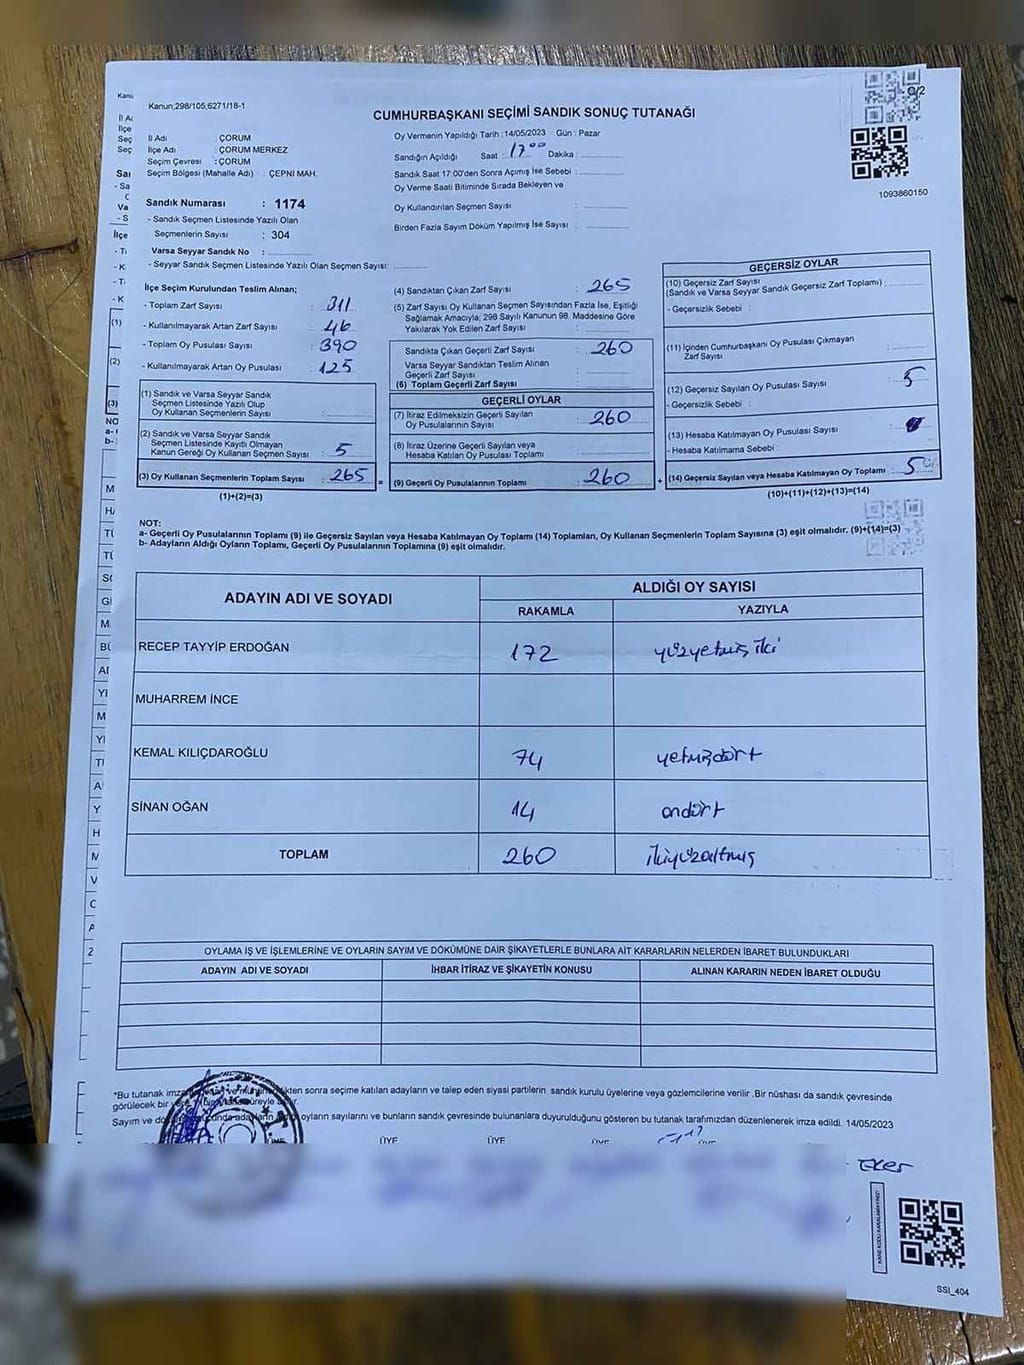 Kanun,298/105,6271/18-1
CUMHURBAŞKANI SEÇİMİ SANDIK SONUÇ TUTANAĞI
0/2
1093860150
İl Adı : ÇORUM
İlçe Adı : ÇORUM MERKEZ
Seçim Çevresi : ÇORUM
Seçim Bölgesi (Mahalle Adı) : ÇEPNİ MAH.
Sandık Numarası : 1174
- Sandık Seçmen Listesinde Yazılı Olan
Seçmenlerin Sayısı : 304
Varsa Seyyar Sandık No :
- Seyyar Sandık Seçmen Listesinde Yazılı Olan Seçmen Sayısı:
Oy Vermenin Yapıldığı Tarih : 14/05/2023 Gün : Pazar
Sandığın Açıldığı Saat : 17 00 Dakika :
Sandık Saat 17:00'den Sonra Açımış İse Sebebi :
Oy Verme Saati Bitiminde Sırada Bekleyen ve
Oy Kullandırılan Seçmen Sayısı :
Birden Fazla Sayım Döküm Yapılmış İse Sayısı :
İlçe Seçim Kurulundan Teslim Alınan;
- Toplam Zarf Sayısı : 311
- Kullanılmayarak Artan Zarf Sayısı : 46
- Toplam Oy Pusulası Sayısı : 390
- Kullanılmayarak Artan Oy Pusulası : 125
(1) Sandık ve Varsa Seyyar Sandık
Seçmen Listesinde Yazılı Olup
Oy Kullanan Seçmenlerin Sayısı :
(2) Sandık ve Varsa Seyyar Sandık
Seçmen Listesinde Kayıtlı Olmayan
Kanun Gereği Oy Kullanan Seçmen Sayısı : 5
(3) Oy Kullanan Seçmenlerin Toplam Sayısı : 265
(1)+(2)=(3)
(4) Sandıktan Çıkan Zarf Sayısı : 265
(5) Zarf Sayısı Oy Kullanan Seçmen Sayısından Fazla İse, Eşitliği
Sağlamak Amacıyla; 298 Sayılı Kanunun 98. Maddesine Göre
Yakılarak Yok Edilen Zarf Sayısı :
Sandıkta Çıkan Geçerli Zarf Sayısı : 260
Varsa Seyyar Sandıktan Teslim Alınan
Geçerli Zarf Sayısı :
(6) Toplam Geçerli Zarf Sayısı :
GEÇERLİ OYLAR
(7) İtiraz Edilmeksizin Geçerli Sayılan
Oy Pusulalarının Sayısı : 260
(8) İtiraz Üzerine Geçerli Sayılan veya
Hesaba Katılan Oy Pusulası Toplamı :
(9) Geçerli Oy Pusulalarının Toplamı : 260
GEÇERSİZ OYLAR
(10) Geçersiz Zarf Sayısı
(Sandık ve Varsa Seyyar Sandık Geçersiz Zarf Toplamı) :
- Geçersizlik Sebebi :
(11) İçinden Cumhurbaşkanı Oy Pusulası Çıkmayan
Zarf Sayısı :
(12) Geçersiz Sayılan Oy Pusulası Sayısı : 5
- Geçersizlik Sebebi :
(13) Hesaba Katılmayan Oy Pusulası Sayısı :
- Hesaba Katılmama Sebebi :
(14) Geçersiz Sayılan veya Hesaba Katılmayan Oy Toplamı : 5
(10)+(11)+(12)+(13)=(14)
NOT:
a- Geçerli Oy Pusulalarının Toplamı (9) ile Geçersiz Sayılan veya Hesaba Katılmayan Oy Toplamı (14) Toplamları, Oy Kullanan Seçmenlerin Toplam Sayısına (3) eşit olmalıdır. (9)+(14)=(3)
b- Adayların Aldığı Oyların Toplamı, Geçerli Oy Pusulalarının Toplamına (9) eşit olmalıdır.
ADAYIN ADI VE SOYADI ALDIĞI OY SAYISI
RAKAMLA YAZIYLA
RECEP TAYYİP ERDOĞAN 172 yüzyetmiş iki
MUHARREM İNCE
KEMAL KILIÇDAROĞLU 74 yetmişdört
SİNAN OĞAN 14 ondört
TOPLAM 260 ikiyüzaltmış
OYLAMA İŞ VE İŞLEMLERİNE VE OYLARIN SAYIM VE DÖKÜMÜNE DAİR ŞİKAYETLERLE BUNLARA AİT KARARLARIN NELERDEN İBARET BULUNDUKLARI
ADAYIN ADI VE SOYADI İHBAR İTİRAZ VE ŞİKAYETİN KONUSU ALINAN KARARIN NEDEN İBARET OLDUĞU
*Bu tutanak sonra seçime katılan adayların ve talep eden siyasi partilerin sandık kurulu üyelerine veya gözlemcilerine verilir. Bir nüshası da sandık çevresinde
görülecek bir
Sayım ve oyların sayılarını ve bunların sandık çevresinde bulunanlara duyurulduğunu gösteren bu tutanak tarafımızdan düzenlenerek imza edildi. 14/05/2023
ÜYE ÜYE ÜYE ÜYE
Eker
SSI_404